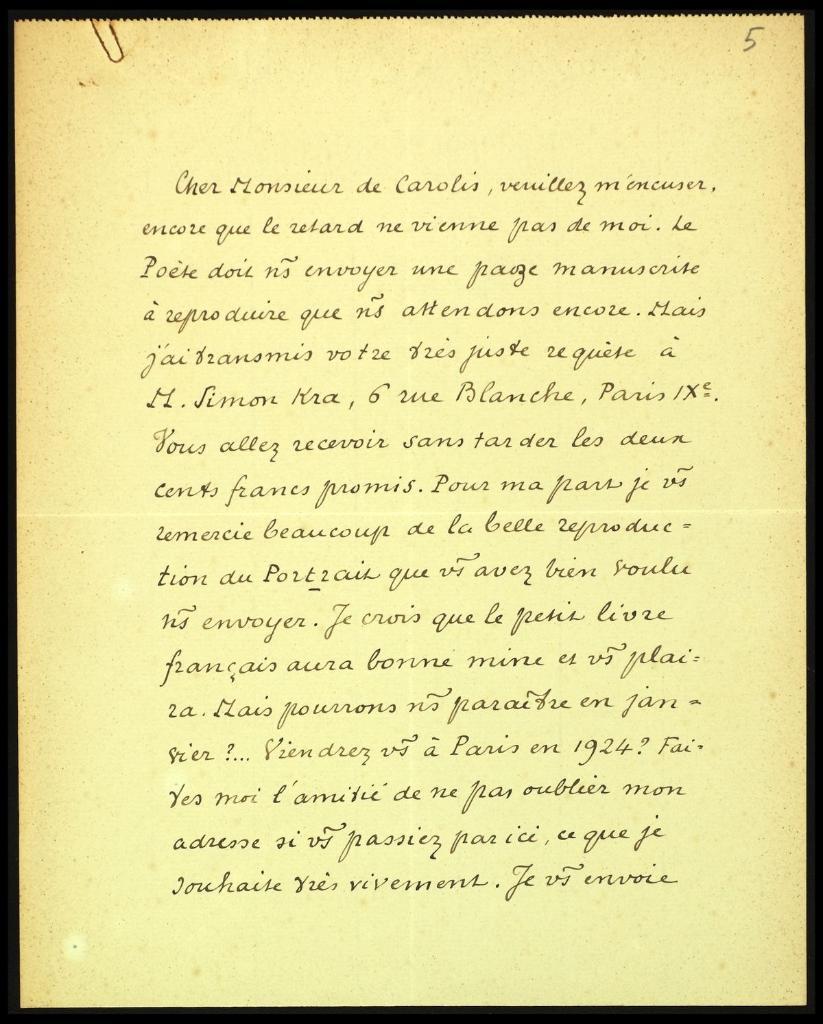 5
Cher Monsieur de Carolis, veuillez m'excuser,
encore que le retard ne vienne pas de moi. Le
Poète doit ns envoyer une page manuscrite
à reproduire que ns attendons encore. Mais
j'ai transmis votre très juste requête à
M. Simon Kra, 6 rue Blanche, Paris IXe.
Vous allez recevoir sans tarder les deux
cents francs promis. Pour ma part je vs
remercie beaucoup de la belle reproduc=
tion du Portrait que vs avez bien voulu
ns envoyer. Je crois que le petit livre
français aura bonne mine et vs plai=
ra. Mais pourrons ns paraître en jan=
vier ?... Viendrez vs à Paris en 1924? Fai=
tes moi l'amitié de ne pas oublier mon
adresse si vs passiez par ici, ce que je
souhaite très vivement. Je vs envoie